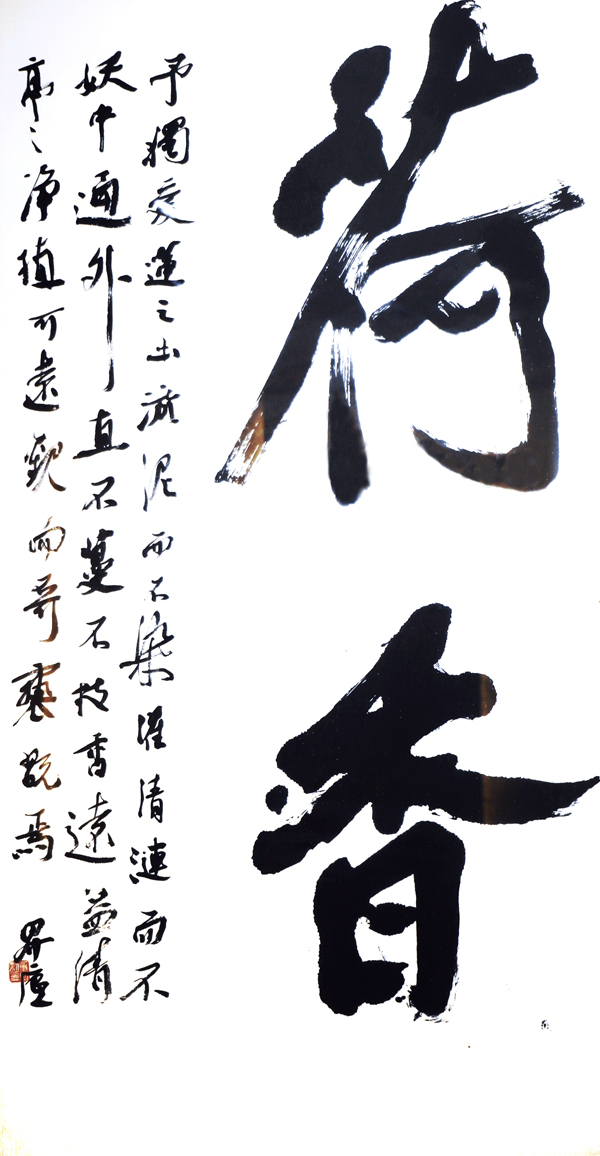 荷香
予獨愛蓮之出淤泥而不染濯清漣而不
妖中通外直不蔓不枝香遠益清
亭々净植可遠觀而不可褻翫焉